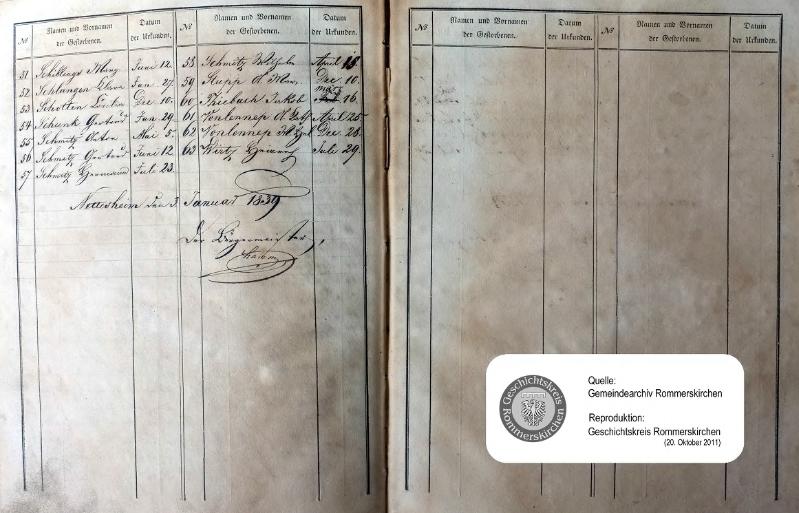 № Namen und Vornamen der Gestorbenen. Datum der Urkunden. № Namen und Vornamen der Gestorbenen. Datum der Urkunden.
51 Schillings Juni 12.
52 Schlangen Jan 27
53 Schotten Dec 10.
54 Schunk Gertrud Jan 29.
55 Schmitz Anton Mai 5.
56 Schmitz Gertrud Juni 12
57 Schmitz Hermann Juli 23.
58 Schmitz Wilhelm April 15
59 Stupp Dec 10.
60 Thiebach Jakob März 16.
61 Vonlennep April 25.
62 Vonlennep Dec. 28.
63 Wirtz Heinrich Juli 29.
Nettesheim den 3. Januar 1839
Der Bürgermeister,
№ Namen und Vornamen der Gestorbenen. Datum der Urkunden. № Namen und Vornamen der Gestorbenen. Datum der Urkunden.
Geschichtskreis Rommerskirchen
Quelle:
Gemeindearchiv Rommerskirchen
Reproduktion:
Geschichtskreis Rommerskirchen
(20. Oktober 2011)